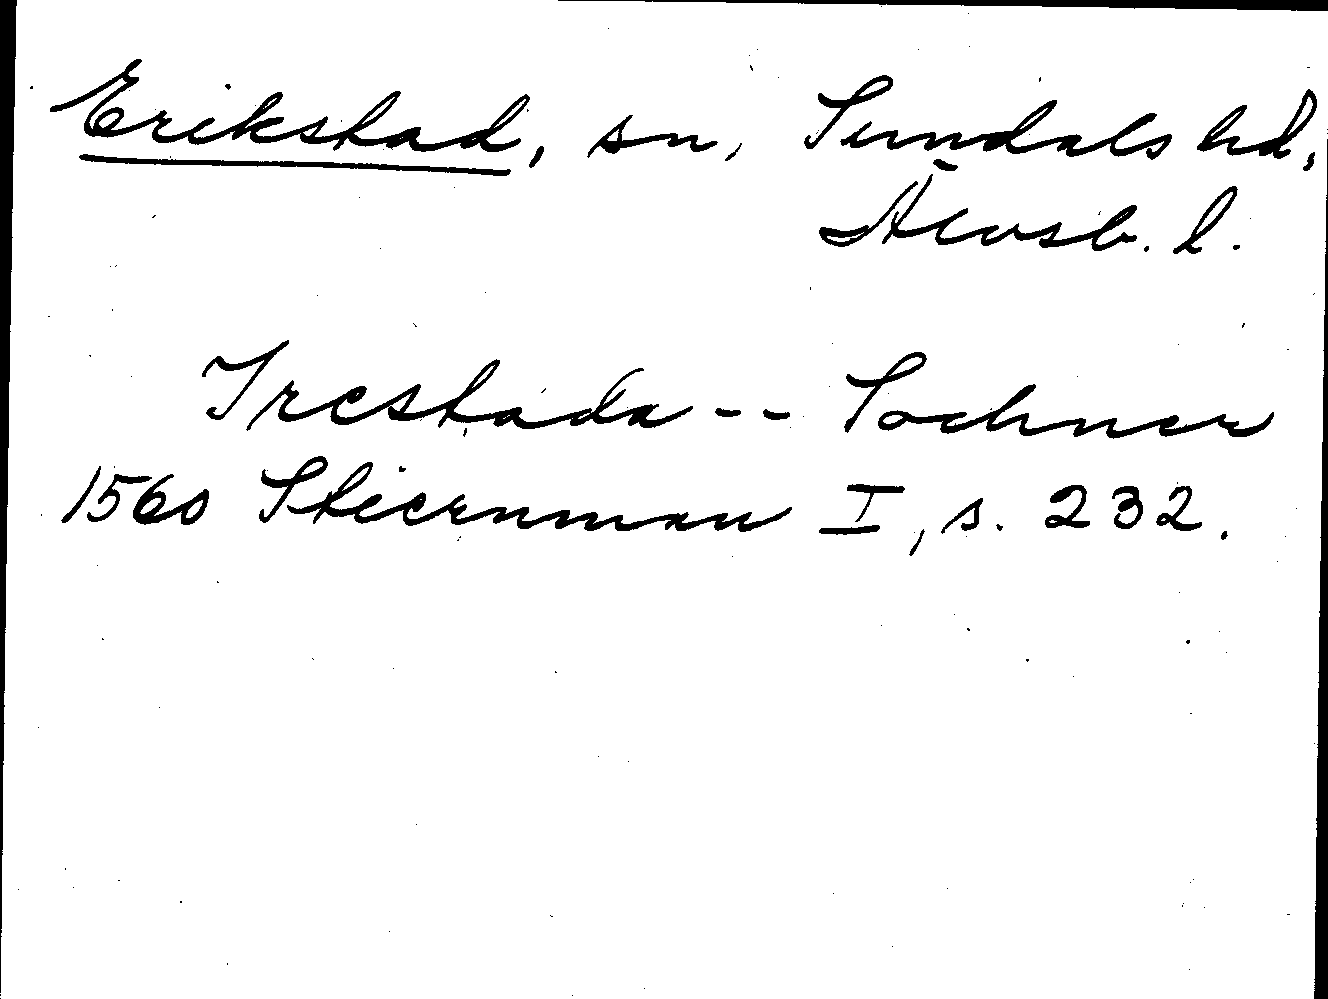 Erikstad, sn, Sundals hd,
Älvsb. l.
Irestada -- Sochner
1560 Stiernman I, s. 232.